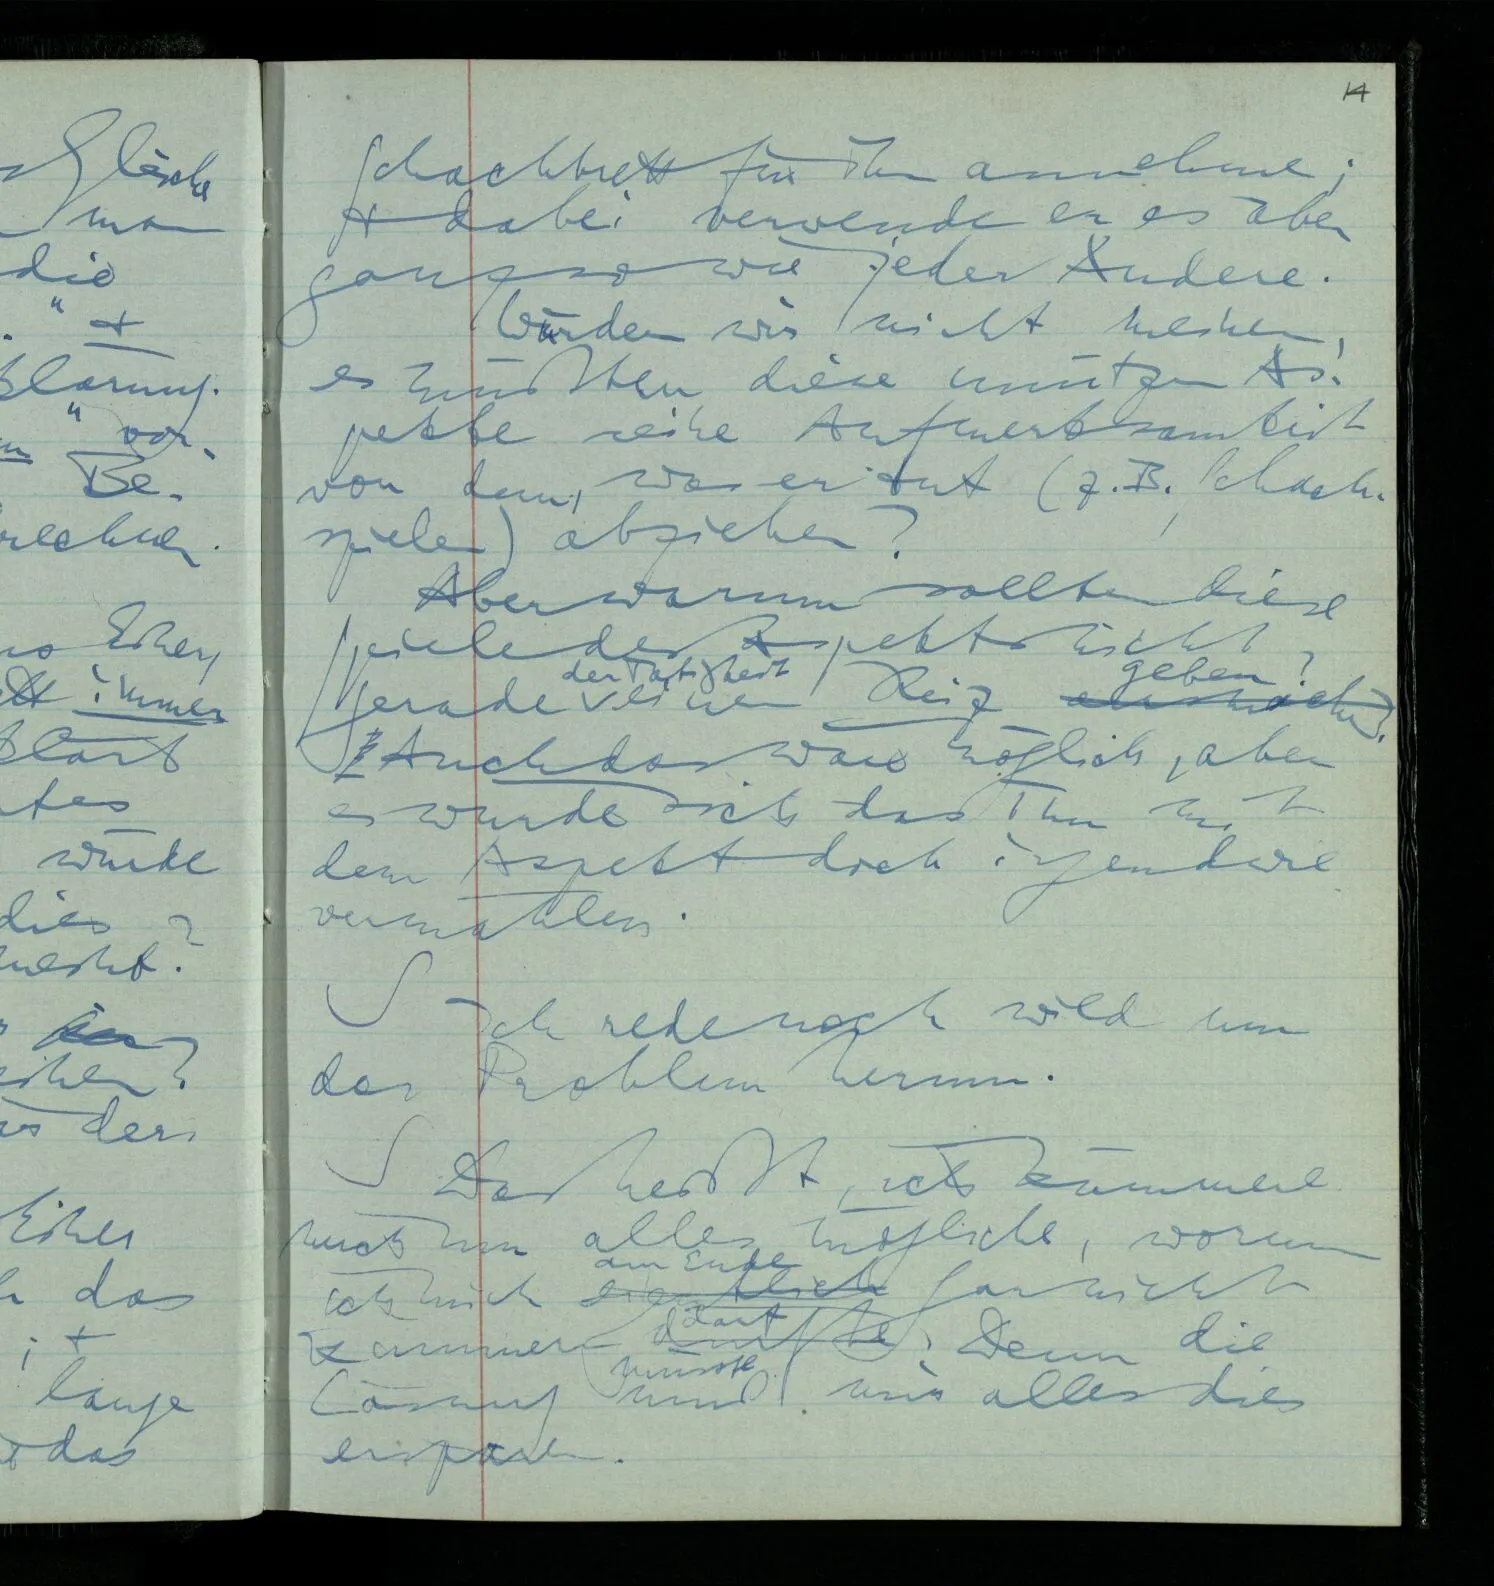 14
Fläche
man
die
." +
klärung.
" vor-
Be-
immer
klärt
würde
dies
das
; +
lange
das
Schachbrett für ihn annehme;
+ dabei verwende er es aber
ganz so wie jeder Andere.
Würden wir nicht meinen,
es müßten diese unnützen As-
pekte seine Aufmerksamkeit
von dem, was er tut (z.B. Schach-
spielen) abziehen?
Aber warum sollten diese
Spiele des Aspekts nicht
der Tätigkeit geben?
gerade einen Reiz
Auch das wäre möglich, aber
es würde sich das Tun mit
dem Aspekt doch irgendwie
vermählen.
∫ Ich rede noch wild um
das Problem herum.
∫ Das heißt, ich kümmere
mich um alles mögliche, worum
am Ende
ich mich eigentlich garnicht
darf
kümmern dürfte; Denn die
müsste
Lösung muß mir alles dies
ersparen.